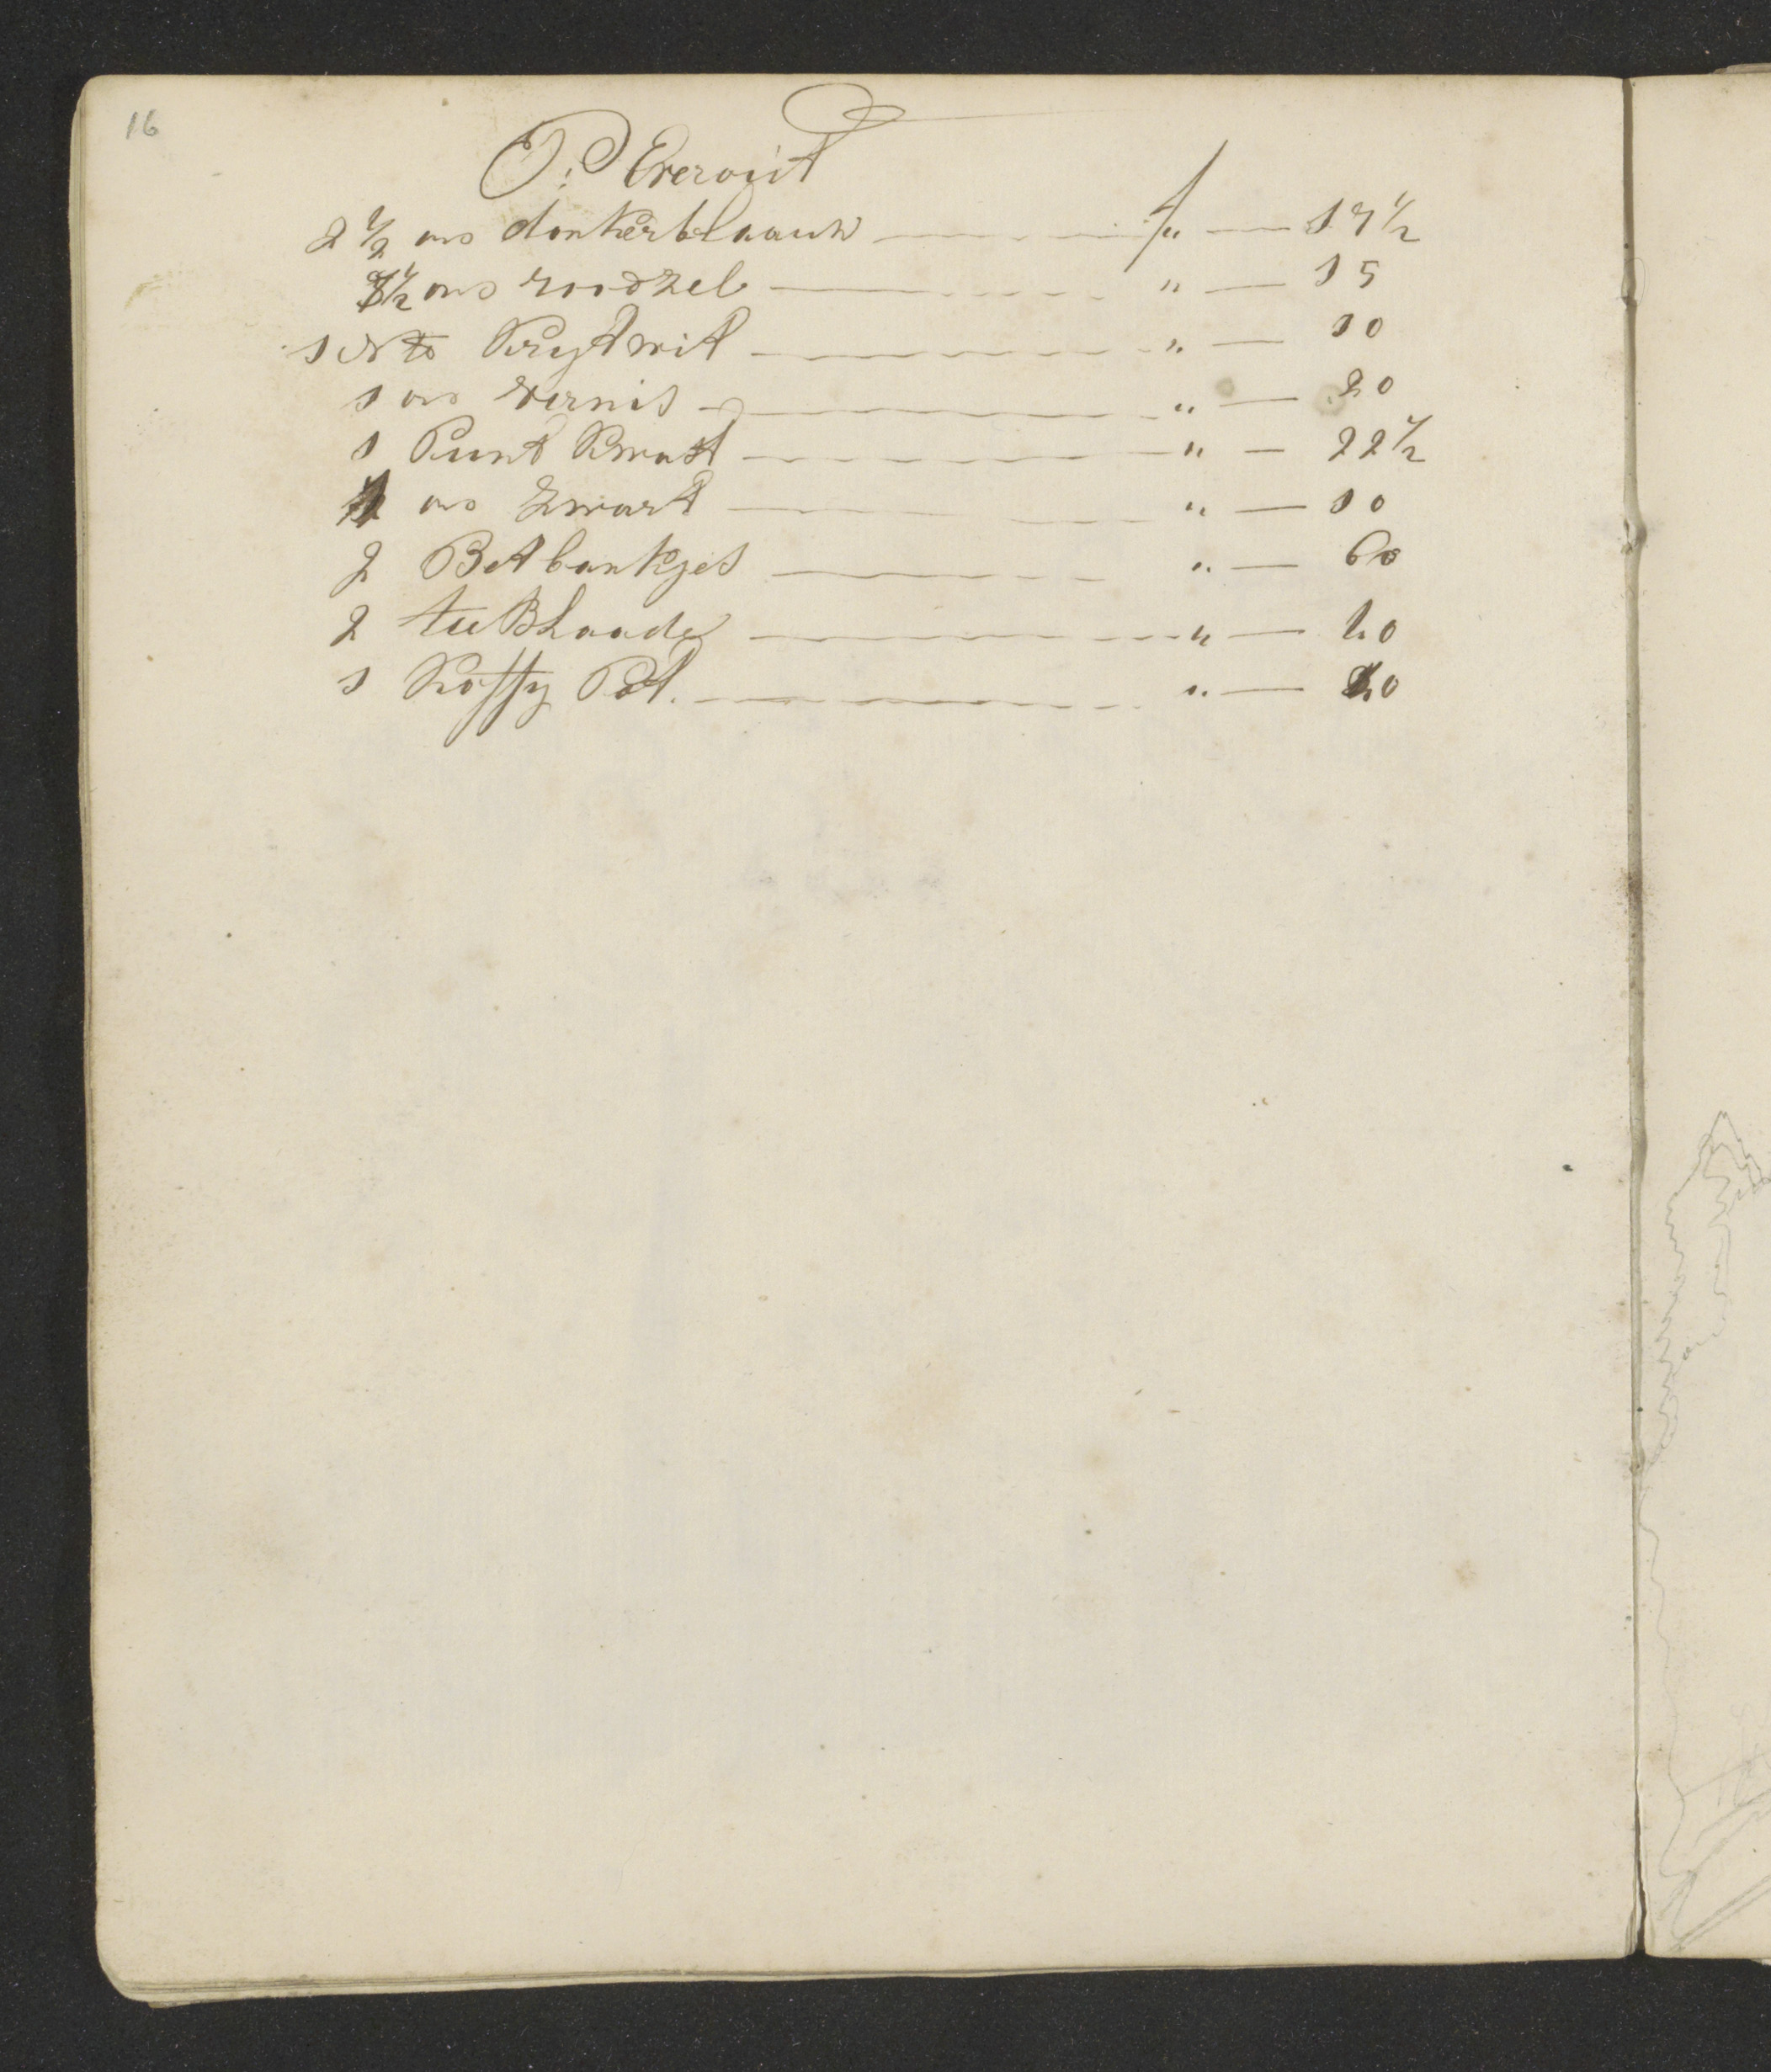 16
P: Everouit
2 1/2 ons donkerblaauw f " — 17 1/2
1/2 ons roodzel " — 15
1 Krytwit " — 10
1 ons vernis " — 20
1 Punt Kwast " — 22 1/2
ons Zwart " — 10
2 Betbankjes " — 60
2 " — 40
1 Koffy Pot. " — 0